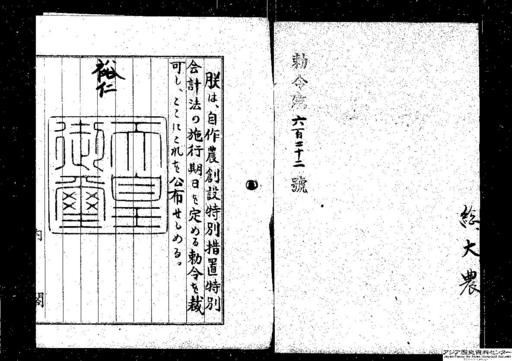 勅令第六百二十二號
総大農
朕は、自作農創設特別措置特別
会計法の施行期日を定める勅令を裁
可し、ここにこれを公布せしめる。
裕仁
天皇御璽
内閣
アジア歴史資料センター